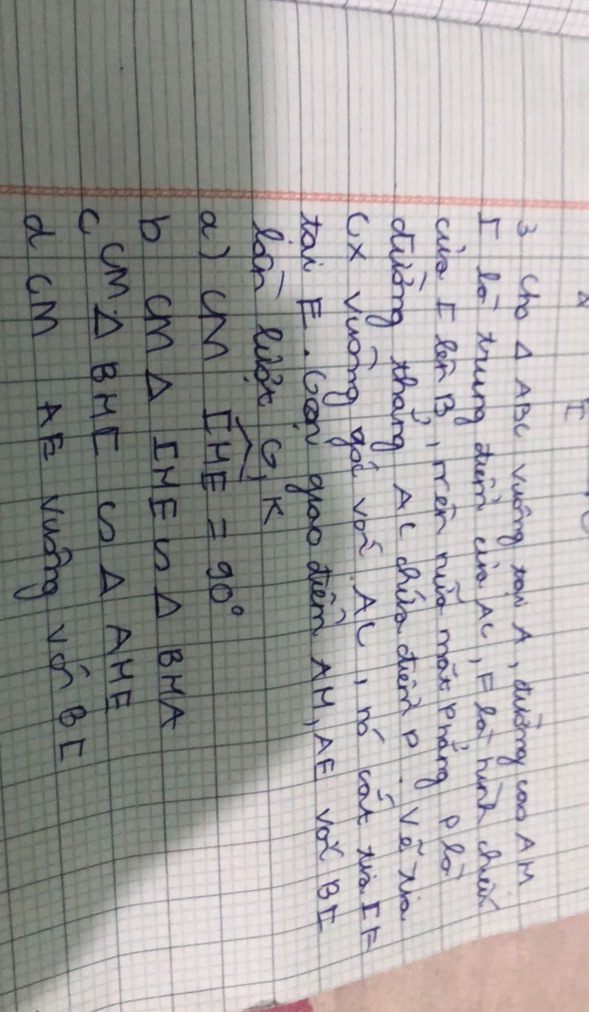 3 Cho Δ ABC vuông tại A, đường cao AH
I là trung điểm của AC, F là hình chiếu
của I lên B, trên nửa mặt phẳng P là
đường thẳng AC chứa điểm P. Vẽ tia
Cx vuông góc với AC, nó cắt tia IF
tại E. Gọi giao điểm AH, AE với BI
lần lượt G, K
a) CM IHE = 90°
b CM Δ IHE ∽ Δ BHA
c CM Δ BHI ∽ Δ AHE
d CM AE vuông với BI